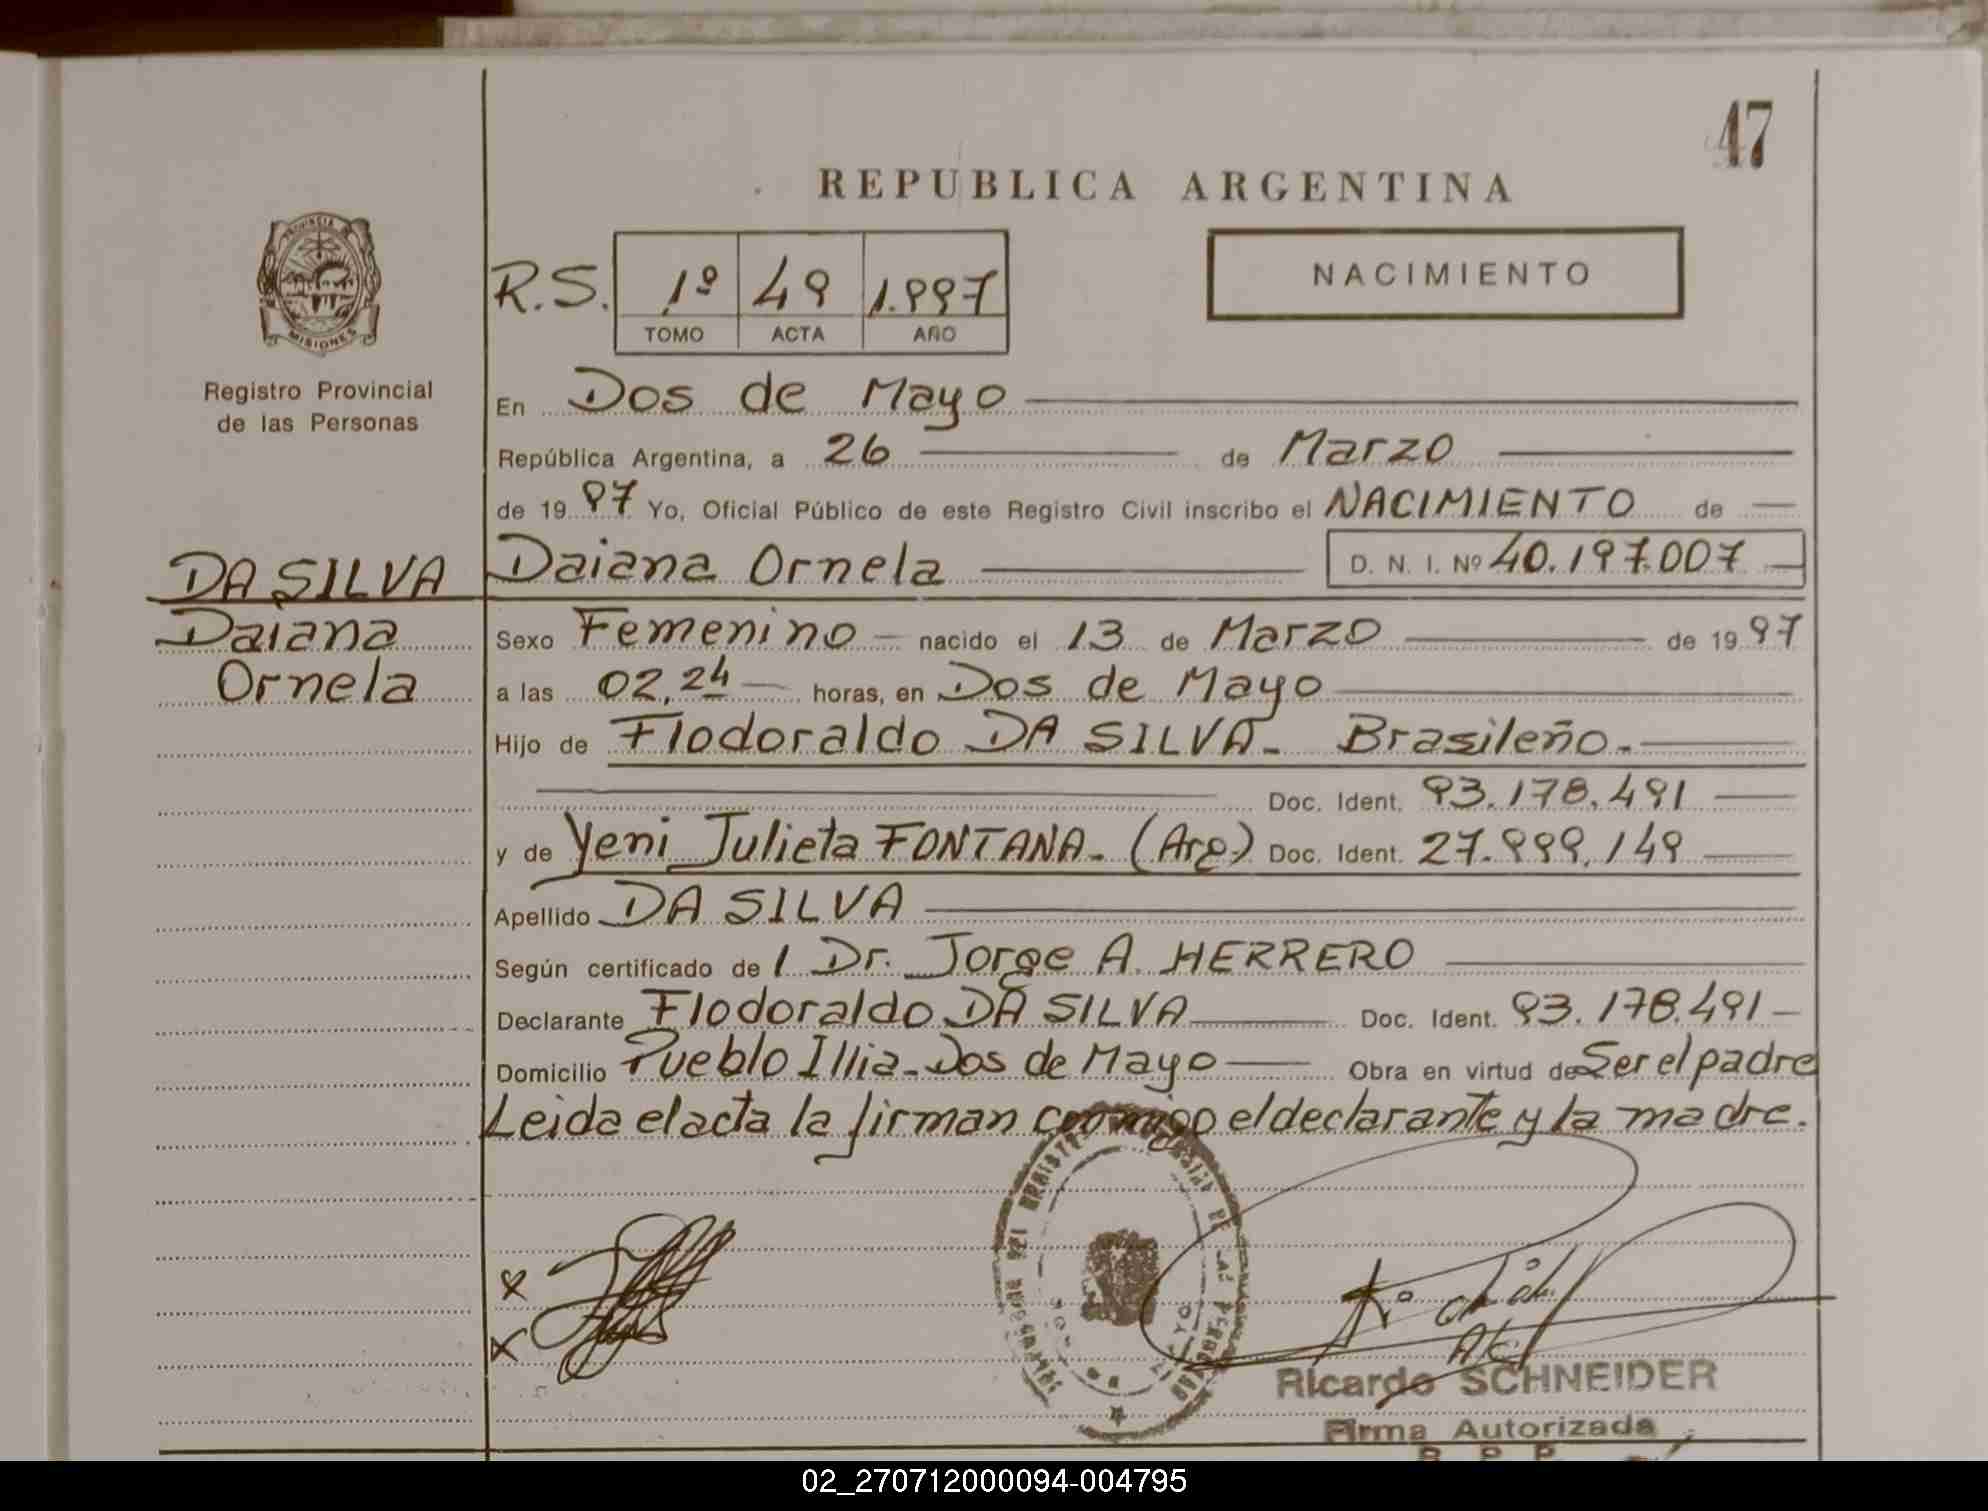 47
REPUBLICA ARGENTINA
PROVINCIA D
MISIONES
Registro Provincial
de las Personas
R.S. 1º 49 1.997
TOMO ACTA AÑO
NACIMIENTO
En Dos de Mayo
República Argentina, a 26 de Marzo
de 1997 Yo, Oficial Público de este Registro Civil inscribo el NACIMIENTO de
DA SILVA Daiana Ornela D. N. I. Nº 40.197.007
Daiana
Ornela
Sexo Femenino nacido el 13 de Marzo de 1997
a las 02,24 horas, en Dos de Mayo
Hijo de Flodoraldo DA SILVA- Brasileño.
Doc. Ident. 93.178.491
y de Yeni Julieta FONTANA- (Arg) Doc. Ident. 27.999.149
Apellido DA SILVA
Según certificado de l Dr. Jorge A. HERRERO
Declarante Flodoraldo DA SILVA Doc. Ident. 93.178.491
Domicilio Pueblo Illia-Dos de Mayo Obra en virtud de Ser el padre
Leida el acta la firman conmigo el declarante y la madre.
x
x
Ricardo SCHNEIDER
Firma Autorizada
R P P
02_270712000094-004795